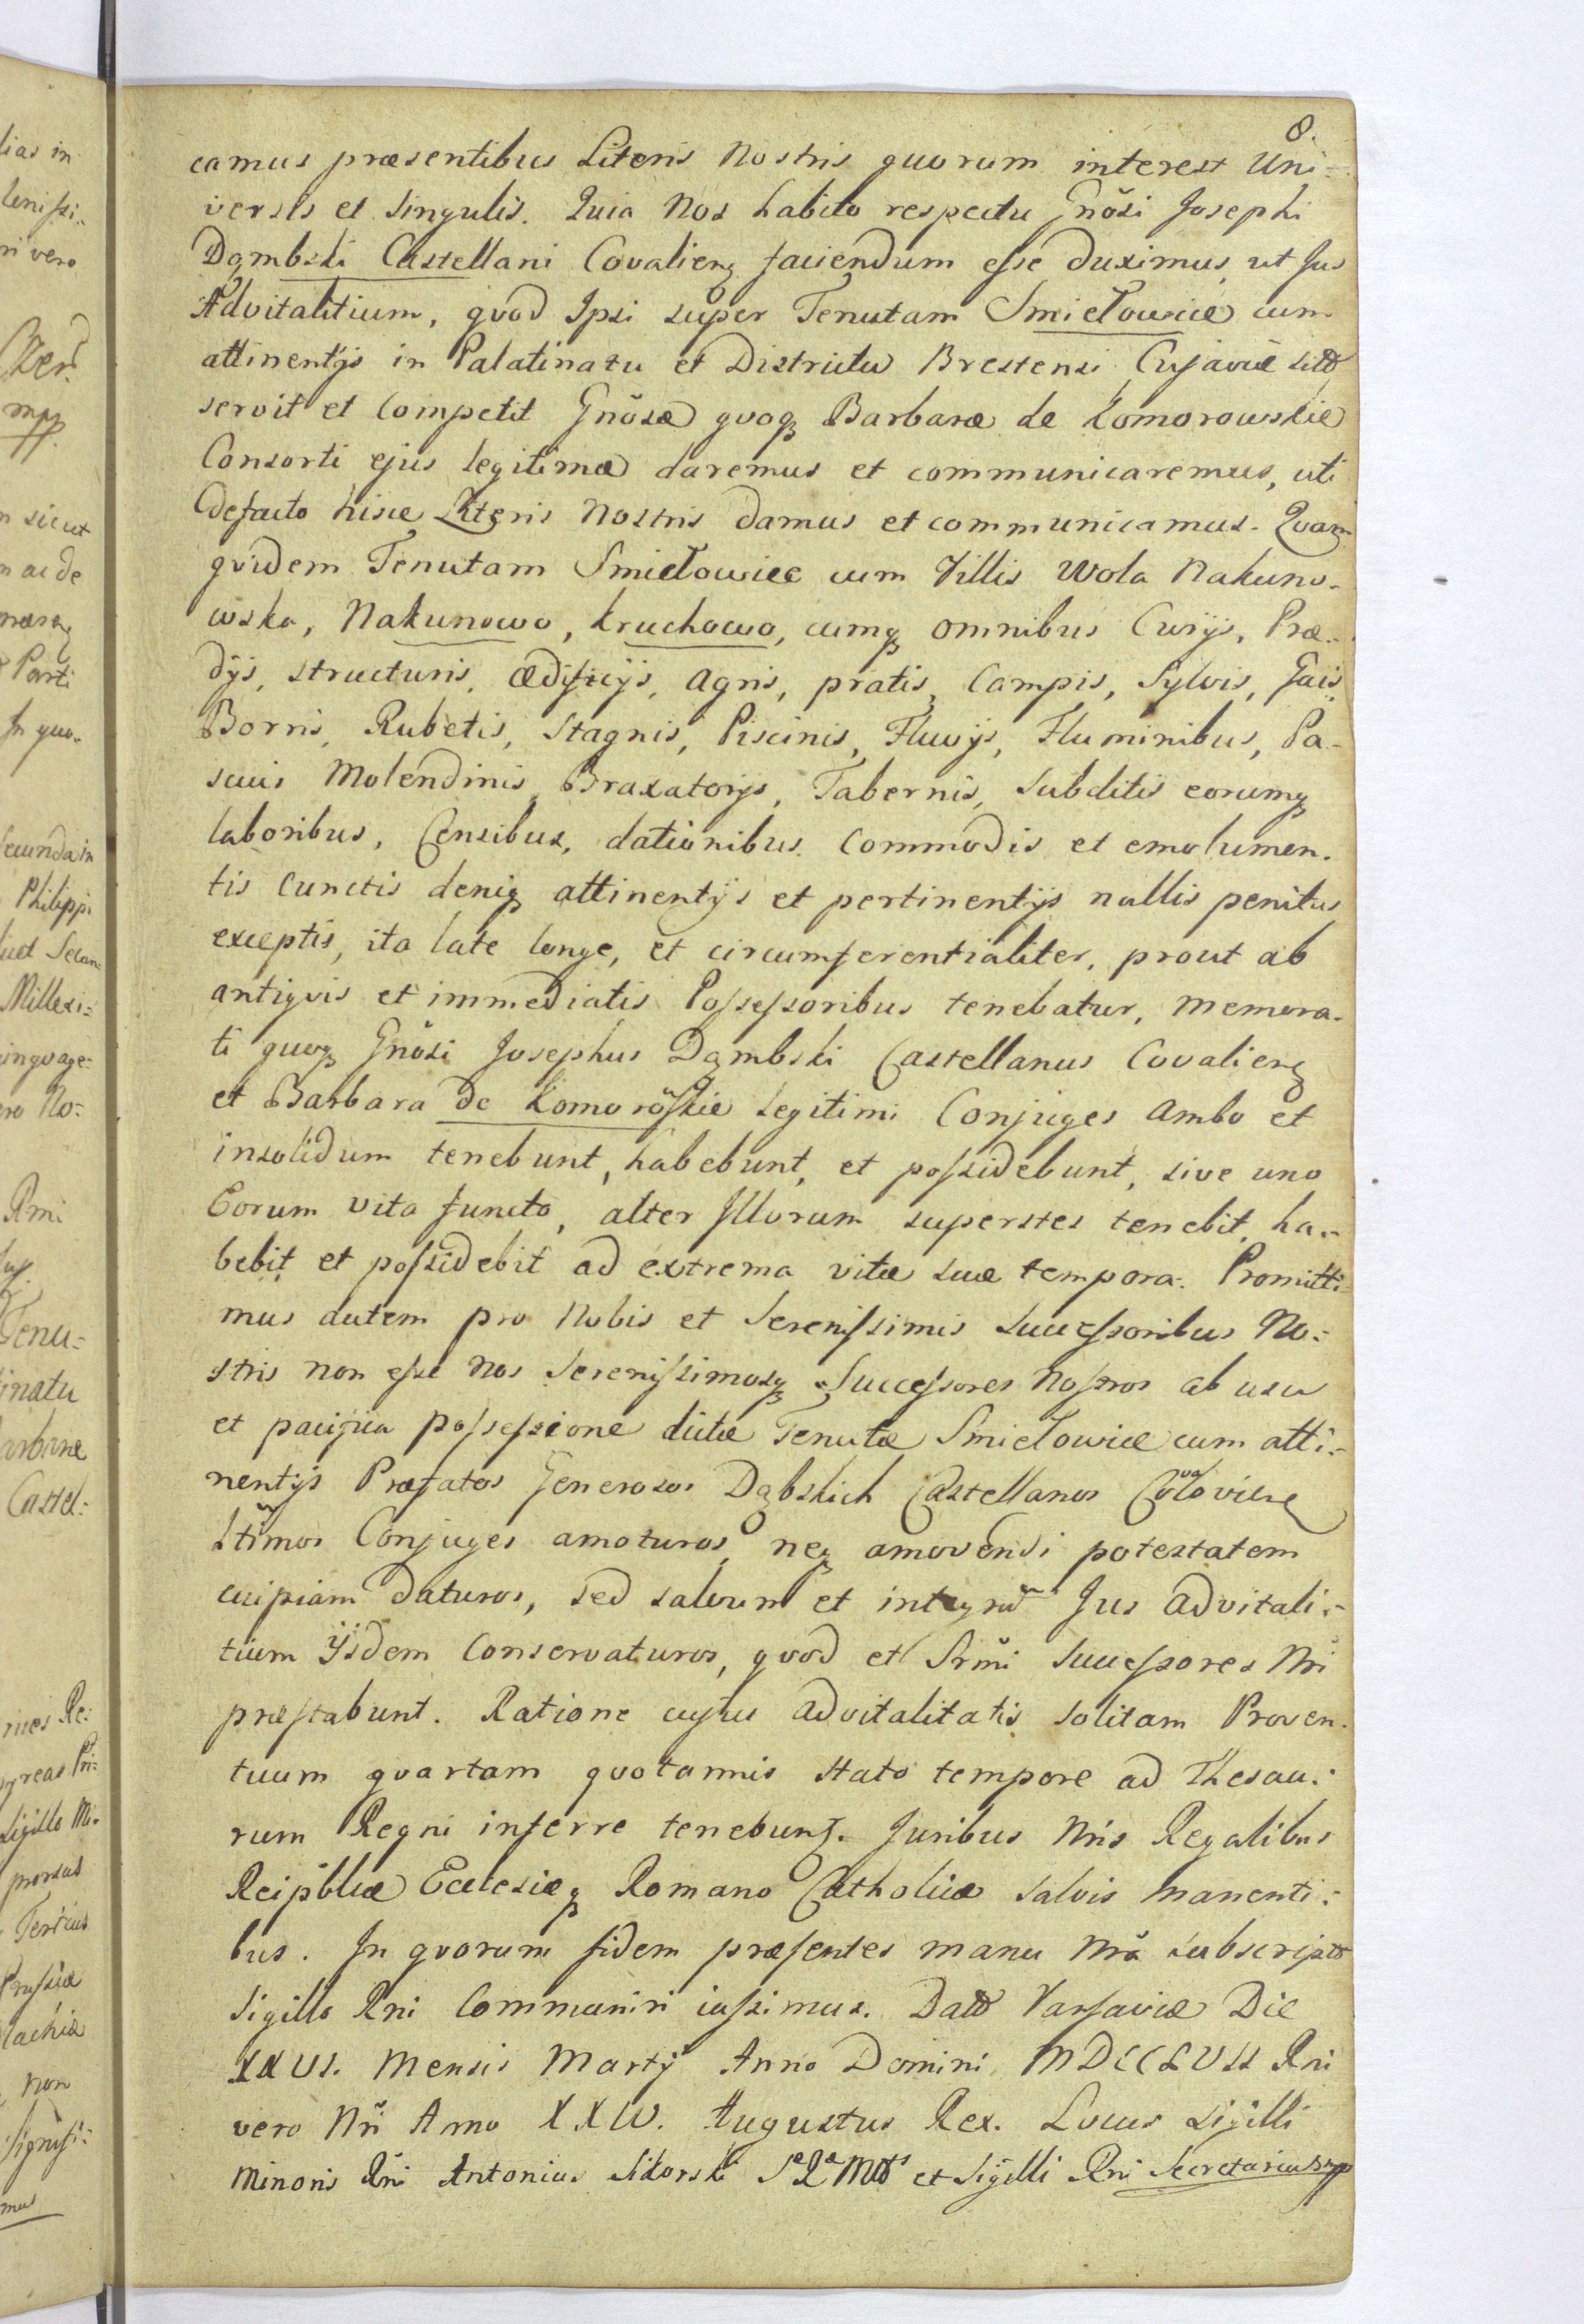 8.
camus præsentibus Literis Nostris quorum interest Uni=
versis et Singulis. Quia Nos habito respectu Gnõsi Josephi
Dąmbski Castellani Covalien faciendum eſse duximus, ut Jus
Advitalitium, qvod Ipsi super Tenutam Smiełowice cum
attinentÿs in Palatinatu et Districtu Brestensi Cujaviæ sitt
servit et Competit Gnõsæ qvoq Barbaræ de Komorowskie
Consorti ejus legitimæ daremus et communicaremus, uti
defacto hisce Literis Nostris damus et communicamus. Qvam
qvidem Tenutam Smiełowice cum Villis Wola Nakuno-
wska, Nakunowo, Kruchowo, cumq omnibus Curÿs, Præ-
dÿs, structuris, ædificÿs, agris, pratis, Campis, Sylvis, Gais,
Borris, Rubetis, Stagnis, Piscinis, Fluvÿs, Fluminibus, Pa-
scuis Molendinis Braxatorÿs, Tabernis, Subditis eorumq
laboribus, Censibus, dationibus. Commodis et emolumen-
tis cunctis deniq attinentÿs et pertinentÿs nullis penitus
exceptis, ita late longe, et circumferentialiter, prout ab
antiqvis et immediatis Poſseſsoribus tenebatur, memora-
ti quoq Gnõsi Josephus Dąmbski Castellanus Covalien
et Barbara de Komorõskie Legitimi Conjuges ambo et
insolidum tenebunt, habebunt, et poſsidebunt, sive uno
Eorum vita functo, alter Illorum superstes tenebit, ha-
bebit et poſsidebit ad extrema vitæ suæ tempora. Promitti-
mus autem pro Nobis et Sereniſsimis Succeſsoribus No=
stris non eſse Nos Sereniſsimosq Succeſsores Noſtros ab usu
et pacifica poſseſsione dictæ Tenutæ Smiełowice cum atti-
nentÿs Præfatos Generosos Dąbskich Castellanos
Ltĩmos Conjuges amoturos, neq amovendi potestatem
cuipiam daturos, sed salvum et integrũ Jus Advitali-
tium ÿsdem Conservaturos, qvod et Srm̃i Succeſsores Nr̃i
præſtabunt. Ratione cujus advitalitatis solitam Proven-
tuum qvartam qvotannis stato tempore ad Thesau-
rum Regni inferre tenebunt. Juribus Nr̃is Regalibus
Reipb̃licæ Ecclesiæq Romano Catholicæ salvis manenti-
bus. In qvorum fidem præſentes manu Nr̃a subscriptt
Sigillo Rni Communiri iuſsimus. Datt Varſaviæ Die
XXVI. Mensis Martÿ Anno Domini MDCCLVII Rni
vero Nr̃i Anno XXIV. Augustus Rex. Locus Sigilli
Minoris Rñi Antonius Sikorski Sæ Ræ Mttis et Sigilli Rni Secretarius mp